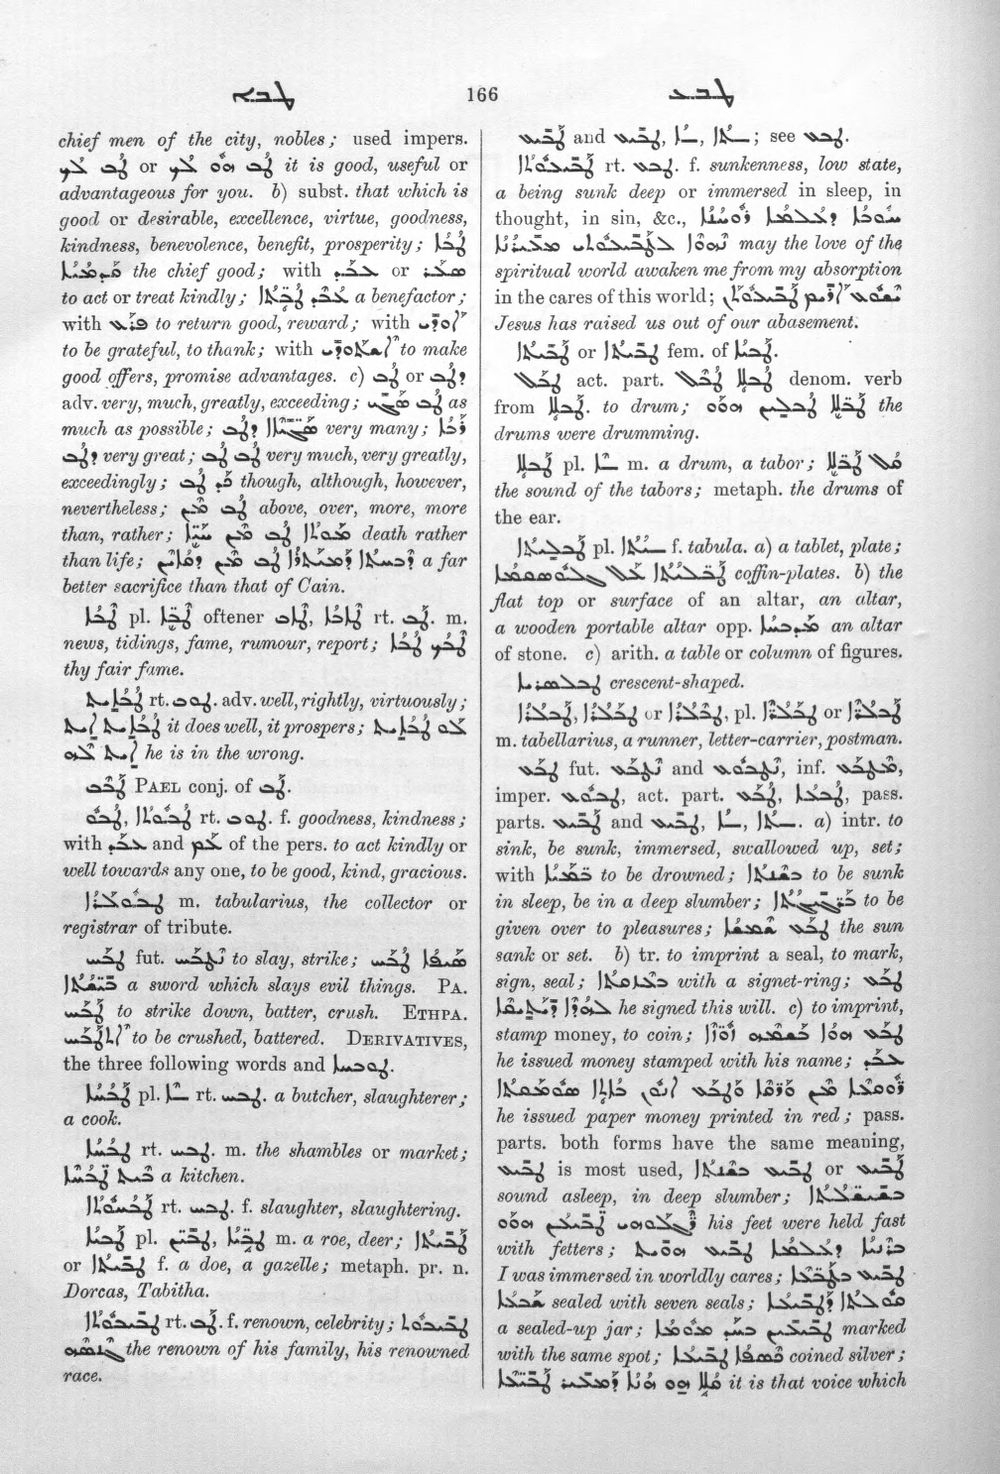 ܛܒܐ 166 ܛܒܥ
chief men of the city, nobles; used impers.
ܛܒ ܠܟ or ܛܒ ܗܘ ܠܟ it is good, useful or
advantageous for you. b) subst. that which is
good or desirable, excellence, virtue, goodness,
kindness, benevolence, benefit, prosperity; ܛܒܐ
ܩܕܡܝܐ the chief good; with ܥܒܕ or ܣܥܪ
to act or treat kindly; ܥܒܕ ܛܒܬܐ a benefactor;
with ܦܪܥ to return good, reward; with ܐܘܕܝ
to be grateful, to thank; with ܐܫܬܘܕܝ to make
good offers, promise advantages. c) ܛܒ or ܕܛܒ
adv. very, much, greatly, exceeding; ܛܒ ܣܓܝ as
much as possible; ܣܓܝܐܐ ܕܛܒ very many; ܪܒܐ
ܕܛܒ very great; ܛܒ ܛܒ very much, very greatly,
exceedingly; ܟܕ ܛܒ though, although, however,
nevertheless; ܛܒ ܡܢ above, over, more, more
than, rather; ܡܘܬܐ ܛܒ ܡܢ ܚܝܐ death rather
than life; ܕܒܚܬܐ ܕܡܝܬܪܐ ܛܒ ܡܢ ܕܩܐܝܢ a far
better sacrifice than that of Cain.
ܛܒܐ pl. ܛܒܐ oftener ܛܐܒ, ܛܐܒܐ rt. ܛܒ. m.
news, tidings, fame, rumour, report; ܛܒܟ ܛܒܐ
thy fair fame.
ܛܒܐܝܬ rt. ܛܘܒ. adv. well, rightly, virtuously;
ܛܒܐܝܬ ܐܝܬ it does well, it prospers; ܠܘ ܛܒܐܝܬ
ܐܝܬ ܠܗ he is in the wrong.
ܛܒܒ PAEL conj. of ܛܒ.
ܛܒܘ, ܛܒܘܬܐ rt. ܛܘܒ. f. goodness, kindness;
with ܥܒܕ and ܥܡ of the pers. to act kindly or
well towards any one, to be good, kind, gracious.
ܛܒܘܠܪܐ m. tabularius, the collector or
registrar of tribute.
ܛܒܚ fut. ܢܛܒܚ to slay, strike; ܣܝܦܐ ܛܒܚ
ܒܝܫܬܐ a sword which slays evil things. PA.
ܛܒܚ to strike down, batter, crush. ETHPA.
ܐܬܛܒܚ to be crushed, battered. DERIVATIVES,
the three following words and ܛܘܒܚܐ.
ܛܒܚܐ pl. ܐ rt. ܛܒܚ. a butcher, slaughterer;
a cook.
ܛܒܚܐ rt. ܛܒܚ. m. the shambles or market;
ܒܝܬ ܛܒܚܐ a kitchen.
ܛܒܚܘܬܐ rt. ܛܒܚ. f. slaughter, slaughtering.
ܛܒܝܐ pl. ܛܒܝܢ, ܛܒܝܐ m. a roe, deer; ܛܒܝܬܐ
or ܛܒܝܬܐ f. a doe, a gazelle; metaph. pr. n.
Dorcas, Tabitha.
ܛܒܝܒܘܬܐ rt. ܛܒ. f. renown, celebrity; ܛܒܝܒܘܬ
ܓܢܣܗ the renown of his family, his renowned
race.
ܛܒܝܥ and ܛܒܝܥ, ܐ, ܬܐ; see ܛܒܥ.
ܛܒܝܥܘܬܐ rt. ܛܒܥ. f. sunkenness, low state,
a being sunk deep or immersed in sleep, in
thought, in sin, &c., ܚܘܒܐ ܕܥܠܡܐ ܪܘܚܢܐ
ܢܗܘܐ ܠܛܒܝܥܘܬܝ ܡܥܝܪܢܐ may the love of the
spiritual world awaken me from my absorption
in the cares of this world; ܝܫܘܥ ܐܪܝܡ ܛܒܝܥܘܬܢ
Jesus has raised us out of our abasement.
ܛܒܝܬܐ or ܛܒܝܬܐ fem. of ܛܒܝܐ.
ܛܒܠ act. part. ܛܒܠܐ ܛܒܠ denom. verb
from ܛܒܠܐ. to drum; ܛܒܠܐ ܛܒܠܝܢ ܗܘܘ the
drums were drumming.
ܛܒܠܐ pl. ܐ m. a drum, a tabor; ܩܠ ܛܒܠܐ
the sound of the tabors; metaph. the drums of
the ear.
ܛܒܠܝܬܐ pl. ܝܬܐ f. tabula. a) a tablet, plate;
ܛܒܠܝܬܐ ܥܠ ܓܠܘܣܩܡܐ coffin-plates. b) the
flat top or surface of an altar, an altar,
a wooden portable altar opp. ܡܕܒܚܐ an altar
of stone. c) arith. a table or column of figures.
ܛܒܠܣܪܝܐ crescent-shaped.
ܛܒܠܪܐ, ܛܒܠܪܐ or ܛܒܠܪܐ, pl. ܛܒܠܪܐ or ܛܒܠܪܐ
m. tabellarius, a runner, letter-carrier, postman.
ܛܒܥ fut. ܢܛܒܥ and ܢܛܒܘܥ, inf. ܡܛܒܥ,
imper. ܛܒܘܥ, act. part. ܛܒܥ, ܛܒܥܐ, pass.
parts. ܛܒܝܥ and ܛܒܝܥ, ܐ, ܬܐ. a) intr. to
sink, be sunk, immersed, swallowed up, set;
with ܒܡܝܐ to be drowned; ܒܫܢܬܐ to be sunk
in sleep, be in a deep slumber; ܒܪܓܝܓܬܐ to be
given over to pleasures; ܛܒܥ ܫܡܫܐ the sun
sank or set. b) tr. to imprint a seal, to mark,
sign, seal; ܒܥܙܩܬܐ with a signet-ring; ܛܒܥ
ܠܗܕܐ ܕܝܬܝܩܐ he signed this will. c) to imprint,
stamp money, to coin; ܛܒܥ ܗܘܐ ܒܫܡܗ ܙܘܙܐ
he issued money stamped with his name; ܥܒܕ
he issued paper money printed in red; pass.
parts. both forms have the same meaning,
ܛܒܝܥ is most used, ܛܒܝܥ ܒܫܢܬܐ or ܛܒܝܥ
sound asleep, in deep slumber;
ܛܒܝܥܝܢ ܗܘܘ ܪܓܠܘܗܝ his feet were held fast
with fetters; ܒܪܢܝܐ ܕܥܠܡܐ ܛܒܝܥ ܗܘܝܬ
I was immersed in worldly cares; ܛܒܝܥ ܒܛܒܥܐ
ܫܒܥܐ sealed with seven seals; ܩܘܠܬܐ ܕܛܒܝܥܐ
a sealed-up jar; ܛܒܝܥܝܢ ܒܚܕ ܟܘܬܡܐ marked
with the same spot; ܟܣܦܐ ܛܒܝܥܐ coined silver;
ܩܠܐ ܗܘ ܗܢܐ ܕܡܥܝܪ ܛܒܝܥܐ it is that voice which